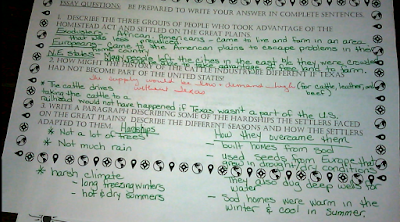 ESSAY QUESTIONS: BE PREPARED TO WRITE YOUR ANSWER IN COMPLETE SENTENCES.
1. DESCRIBE THE THREE GROUPS OF PEOPLE WHO TOOK ADVANTAGE OF THE
HOMESTEAD ACT AND SETTLED ON THE GREAT PLAINS.
African Americans - came to live and farm in an area
Europeans - came to the American plains to escape problems in their
2. HOW MIGHT THE CATTLE INDUSTRY BE DIFFERENT IF TEXAS
HAD NOT BECOME PART OF THE UNITED STATES
supply would be low - demand high (for cattle, leather, beef)
without Texas
* The cattle drives
taking the cattle to a
railroad would not have happened if Texas wasn't a part of the U.S.
3. WRITE A PARAGRAPH DESCRIBING SOME OF THE HARDSHIPS THE SETTLERS FACED
ON THE GREAT PLAINS. DESCRIBE THE DIFFERENT SEASONS AND HOW THE SETTLERS
ADAPTED TO THEM.
Hardships
How they overcame them
* Not a lot of trees
- built homes from sod
* Not much rain
- used seeds from Europe that
grew in drought/dry conditions
- They also dug deep wells for
water
* harsh climate
- long freezing winters
- hot & dry summers
- Sod homes were warm in the
winter & cool in summer.